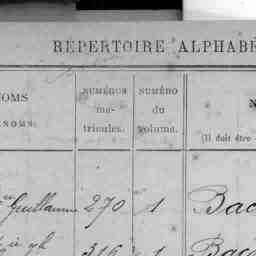 RÉPERTOIRE ALPHABÉ
NOMS
NUMÉROS
ma-
tricules.
NUMÉRO
du
volume.
N
NOMS.
(Il doit être
Guillaume 270 1 Bac
316 1 Bac